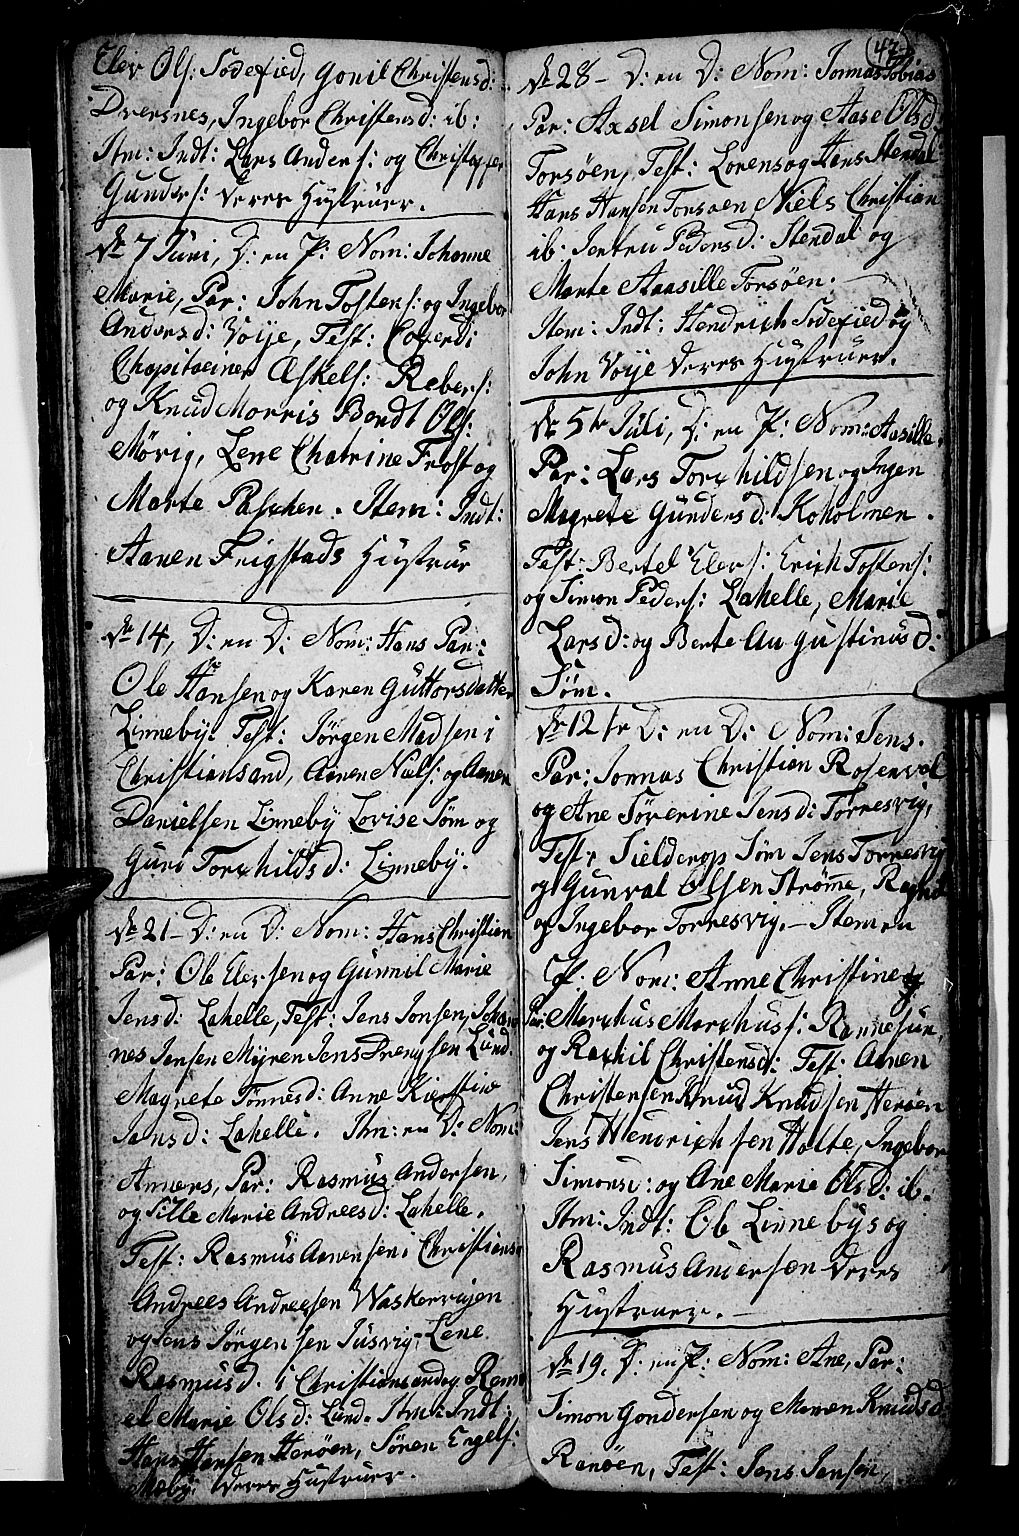 Elev Ols: Sodefied, Gonil Christensd:
Dversnes, Ingebor Christensd: ib:
Itm: Indt: Lars Anders: og Christopher
Gunders: Deres Hustruer.
de 7 Juni, D: en P: Nom: Johanne
Marie, Par: John Tostens: og Ingebor
Andersd: Voije, Test:
Chapitaeiner Æskels: Rebers:
og Knud Morris Bendt Ols:
Mörig, Lene Chatrine Frost og
Marte Paschen. Item: Indt:
Aanen Frigstads Hustrue
de 14, D: en D: Nom: Hans Par:
Ole Hansen og Karen Guttorsdatter
Linneby. Test: Jörgen Madsen i
Christiansand, Aanen Niels: og Aanen
Danielsen Linneby Lovise Söm og
Guri Torchildsd: Linneby.
de 21 - D: en D: Nom: Hans Christian
Par: Ole Elersen og Gunnil Marie
Jensd: Lahelle, Test: Jens Jonsen, Johan
nes Jensen Myren Jens Drengsen Lund.
Magrete Tönnesd: Anne Kierstine
Jansd: Lahelle. Itm: en D: Nom:
Anners, Par: Rasmus Andersen,
og Sille Marie Andreesd: Lahelle.
Test: Rasmus Aanensen i Christians
Andrees Andreesen Waskervigen
og Jens Jörgensen Justvig, Lene
Rasmusd. i Christiansand og
Marie Olsd: Lund. Itm: Indt:
Hans Hansen Heröen, Sören Engels:
Moby. Deres Hustruer.
42
de 28 - D: en D: Nom: Jonnas Tobias
Par: Axsel Simonsen og Aase Olsd:
Torsöen, Test: Lorens og Hans Stendal
Hans Hansen Torsoen Niels Christian
ib: Jertru Pedersd: Stendal og
Marte Aaasille Torsöen.
Item: Indt: Hendrich Sodefied og
John Voije Deres Hustruer.
de 5te Juli, D: en P: Nom: Aasille
Par: Lars Torchildsen og Ingen
Magrete Gundersd: Koholmen.
Test: Bertel Elers: Erich Tostens:
og Simon Peders: Lahelle, Marie
Larsd: og Berte Augustinusd:
Söm.
de 12te D: en D: Nom: Jens.
Par: Jonnas Christian Rosenvol
og Ane Söverine Jensd: Torresvig,
Test: Sielderop Söm Jens Torresvig
og Gunval Olsen Strömme,
og Ingebor Torresvig. - Item en
P: Nom: Anne Christine
Par: Marchus Marchus:
og Rachil Christensd: Test: Aanen
Christensen Knud Knudsen Heröen
Jens Hendrichsen Holte, Ingebor
Simonsd: og Ane Marie Olsd: ib.
Itm: Indt: Ole Linnebys og
Rasmus Andersen Deres
Hustruer. -
de 19. D: en P: Nom: Ane, Par:
Simon Gondersen og Maren Knudsd:
Ranöen, Test: Jens Jansen,